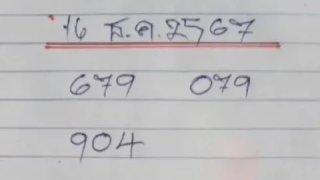 16 ธ.ค.2567
679 079
904